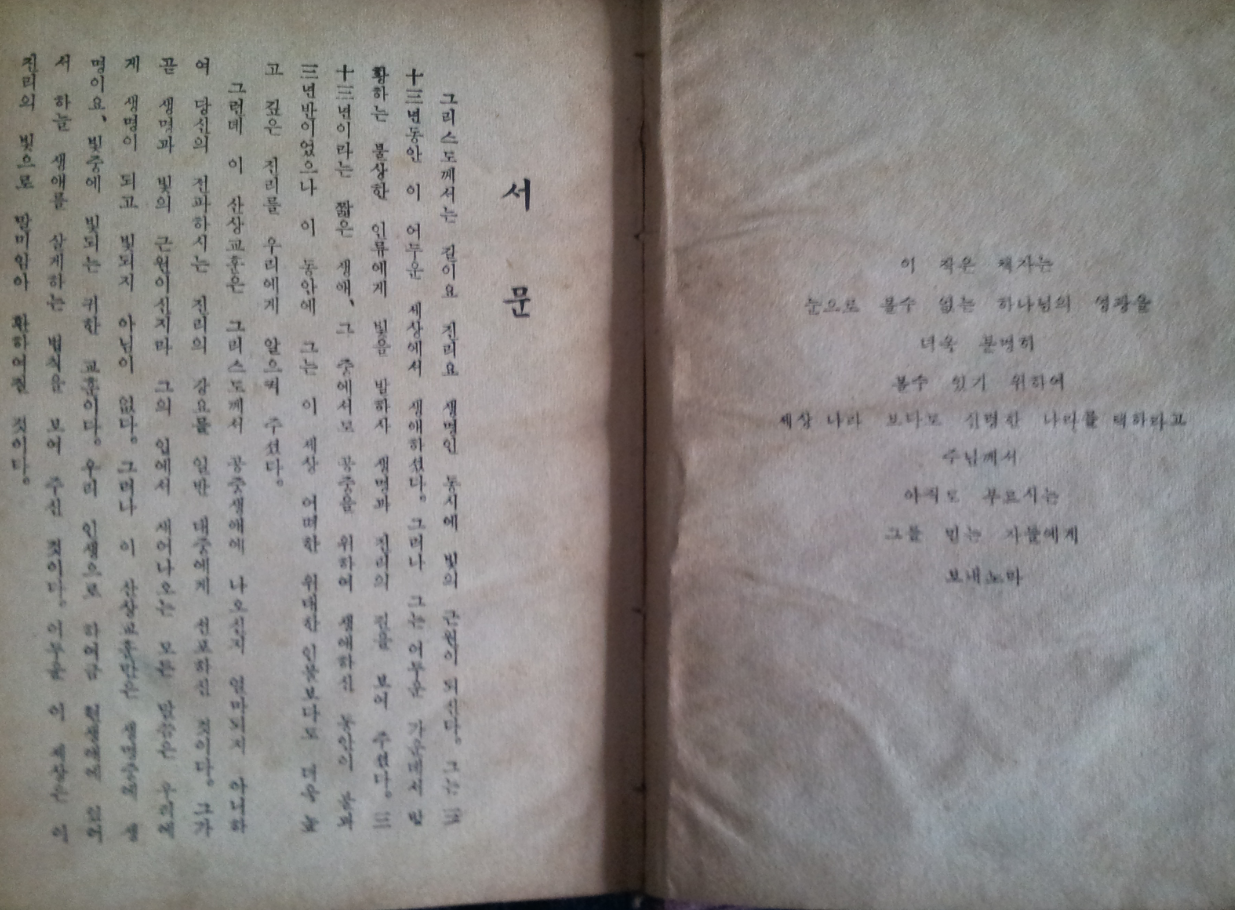 이 작은 책자는
눈으로 볼수 없는 하나님의 영광을
더욱 분명히
볼수 있기 위하여
세상 나라 보다도 신령한 나라를 택하라고
주님께서
아직도 부르시는
그를 믿는 자들에게
보내노라
서 문
그리스도께서는 길이요 진리요 생명인 동시에 빛의 근원이 되신다。 그는 三
十三년동안 이 어두운 세상에서 생애하셨다。 그러나 그는 어두운 가운데서 방
황하는 불상한 인류에게 빛을 발하사 생명과 진리의 길을 보여 주셨다。 三
十三년이라는 짧은 생애、 그 중에서도 공중을 위하여 생애하신 동안이 불과
三년반이었으나 이 동안에 그는 이 세상 어떠한 위대한 인물보다도 더욱 높
고 깊은 진리를 우리에게 알으켜 주셨다。
그런데 이 산상교훈은 그리스도께서 공중생애에 나오신지 얼마되지 아니하
여 당신의 전파하시는 진리의 강요를 일반 대중에게 선포하신 것이다。 그가
곧 생명과 빛의 근원이신지라 그의 입에서 새어나오는 모든 말씀은 우리에
게 생명이 되고 빛되지 아님이 없다。 그러나 이 산상교훈만은 생명중에 생
명이요、 빛중에 빛되는 귀한 교훈이다。 우리 인생으로 하여금 현세에 있어
서 하늘 생애를 살게하는 법칙을 보여 주신 것이다。 어두운 이 세상은 이
진리의 빛으로 말미암아 환하여질 것이다。